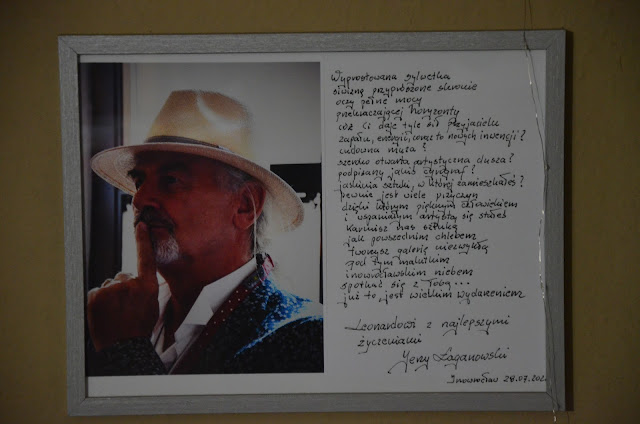 Wyprostowana sylwetka
siwizną przyprószone skronie
oczy pełne mocy
przekraczającej horyzonty
cóż Ci daje tyle sił Przyjacielu
zapału, energii, coraz to nowych inwencji?
cudowna muza?
szeroko otwarta artystyczna dusza?
podpisany jakiś cyrograf?
jaskinia sztuki, w której zamieszkałeś?
pewnie jest wiele przyczyn
dzięki którym pięknym człowiekiem
i wspaniałym artystą się stałeś
karmisz nas sztuką
jak powszednim chlebem
tworzysz galerię niezwykłą
pod tym malutkim
inowrocławskim niebem
spotkać się z Tobą...
już to, jest wielkim wydarzeniem
Leonardowi z najlepszymi
życzeniami
Jerzy Łaganowski
Inowrocław 28.07.